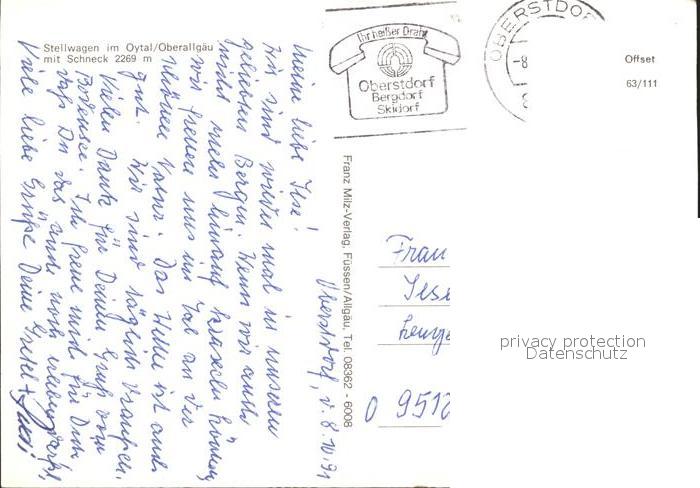 Stellwagen im Oytal/Oberallgäu
mit Schneck 2269 m
Ihr heißer Draht
Oberstdorf
Bergdorf
Skidorf
OBERSTDOR
-8.
Offset
63/111
Oberstdorf, d. 8.10.91
Meine liebe Ilse!
Wir sind wieder mal in unseren
geliebten Bergen. Wenn wir auch
nicht mehr hinauf kraxeln können
wir freuen uns im Tal an der
schönen Natur. Das Wetter ist auch
gut. Wir sind täglich draußen.
Vielen Dank für Deinen Gruß vom
Bodensee. Ich freue mich für Dich
daß Du das auch noch erleben darfst.
Viele liebe Grüße Deine Gretel +
Franz Milz-Verlag, Füssen/Allgäu, Tel. 08362 - 6008
Frau
Ilse
O 9512
privacy protection
Datenschutz